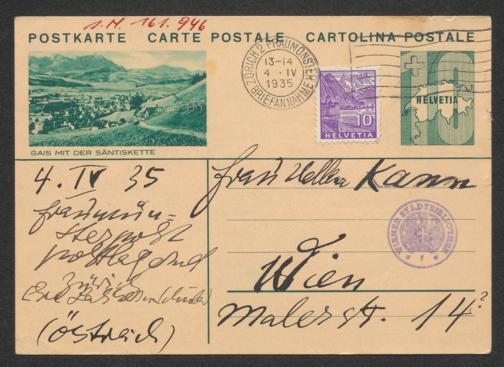 1. N. 161.946
POSTKARTE CARTE POSTALE CARTOLINA POSTALE
ZÜRICH 2 FRAUMÜNSTER
13-14
4. IV
1935
BRIEFANNAHME
10
HELVETIA
10
HELVETIA
GAIS MIT DER SÄNTISKETTE
4. IV 35
Fraumün-
sterpost
postlagernd
Zürich
(Österreich)
Frau Hellen Kann
WIENER STADTBIBLIOTHEK
Wien
Malerstr. 14?